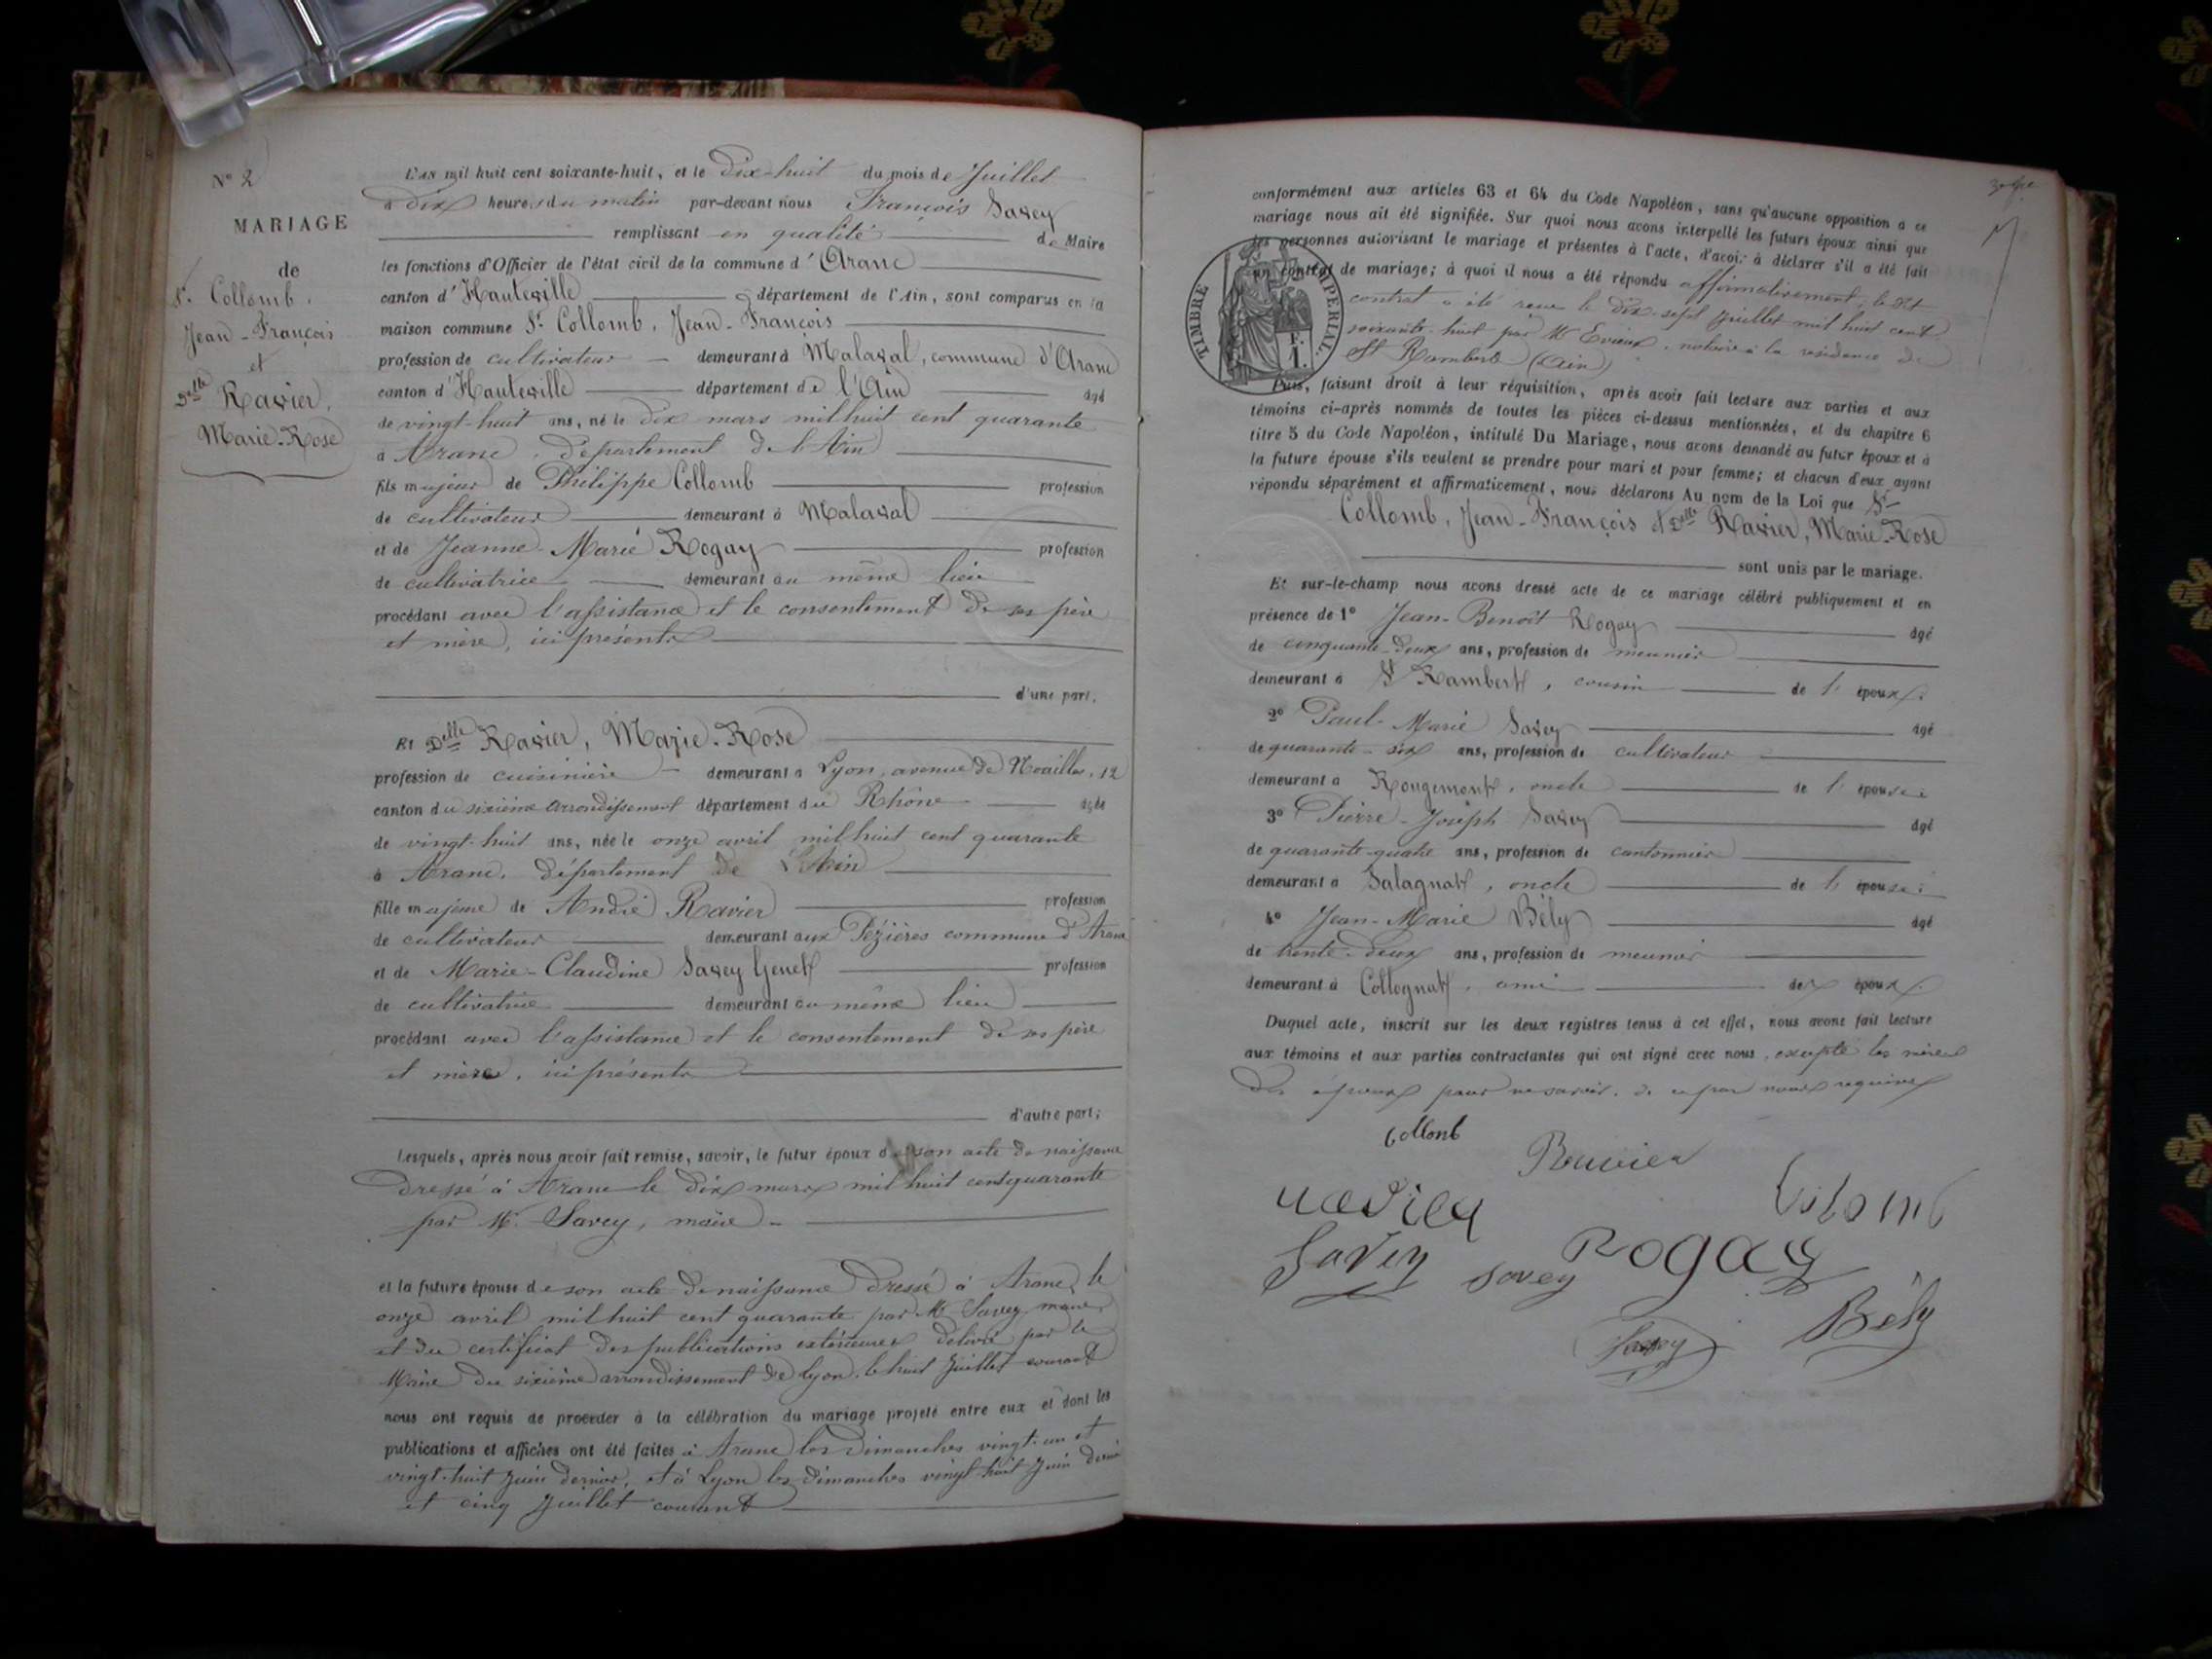 N° 2
MARIAGE
de
Sr. Collomb,
Jean-François
et
Delle Ravier,
Marie-Rose
L'an mil huit cent soixante-huit, et le Dix-huit du mois de Juillet
à Dix heures du matin par-devant nous François Savey
remplissant en qualité de Maire
les fonctions d'Officier de l'état civil de la commune d'Aranc
canton d'Hauteville département de l'Ain, sont comparus en la
maison commune Sr. Collomb, Jean-François
profession de cultivateur demeurant à Malaval, commune d'Aranc
canton d'Hauteville département de l'Ain âgé
de vingt-huit ans, né le dix mars mil huit cent quarante
à Aranc, département de l'Ain
fils majeur de Philippe Collomb profession
de cultivateur demeurant à Malaval
et de Jeanne-Marie Rogay profession
de cultivatrice demeurant au même lieu
procédant avec l'assistance et le consentement de ses père
et mère, ici présents
d'une part.
Et Delle Ravier, Marie-Rose
profession de cuisinière demeurant à Lyon, avenue de Noailles, 12
canton du sixième arrondissement département du Rhône âgée
de vingt-huit ans, née le onze avril mil huit cent quarante
à Aranc, département de l'Ain
fille majeure de André Ravier profession
de cultivateur demeurant aux Pézières commune d'Aranc
et de Marie-Claudine Savey Genet profession
de cultivatrice demeurant au même lieu
procédant avec l'assistance et le consentement de ses père
et mère, ici présents
d'autre part;
Lesquels, après nous avoir fait remise, savoir, le futur époux de son acte de naissance
dressé à Aranc le dix mars mil huit cent quarante
par M. Savey, maire
et la future épouse de son acte de naissance dressé à Aranc, le
onze avril mil huit cent quarante par M. Savey maire
et du certificat des publications extérieures délivré par le
Maire du sixième arrondissement de Lyon, le huit Juillet courant
nous ont requis de procéder à la célébration du mariage projeté entre eux et dont les
publications et affiches ont été faites à Aranc les Dimanches vingt-un et
vingt-huit Juin dernier, et à Lyon les Dimanches vingt-huit Juin dernier
et cinq Juillet courant
conformément aux articles 63 et 64 du Code Napoléon, sans qu'aucune opposition à ce
mariage nous ait été signifiée. Sur quoi nous avons interpellé les futurs époux ainsi que
les personnes autorisant le mariage et présentes à l'acte, d'avoir à déclarer s'il a été fait
un contrat de mariage; à quoi il nous a été répondu affirmativement; le dit
contrat a été reçu le dix-sept Juillet mil huit cent
soixante-huit par Me notaire à la résidence de
St Rambert (Ain)
TIMBRE IMPERIAL.
1 F.
Puis, faisant droit à leur réquisition, après avoir fait lecture aux parties et aux
témoins ci-après nommés de toutes les pièces ci-dessus mentionnées, et du chapitre 6
titre 5 du Code Napoléon, intitulé Du Mariage, nous avons demandé au futur époux et à
la future épouse s'ils veulent se prendre pour mari et pour femme; et chacun d'eux ayant
répondu séparément et affirmativement, nous déclarons Au nom de la Loi que Sr
Collomb, Jean-François et Delle Ravier, Marie-Rose
sont unis par le mariage.
Et sur-le-champ nous avons dressé acte de ce mariage célébré publiquement et en
présence de 1° Jean-Benoît Rogay âgé
de cinquante-deux ans, profession de meunier
demeurant à St Rambert, cousin de l'époux.
2° Paul-Marie Savey âgé
de quarante-six ans, profession de cultivateur
demeurant à Rougemont, oncle de l'épouse.
3° Pierre-Joseph Savey âgé
de quarante-quatre ans, profession de cantonnier
demeurant à Salagnat, oncle de l'épouse.
4° Jean-Marie Bély âgé
de trente-deux ans, profession de meunier
demeurant à Collognat, ami des époux.
Duquel acte, inscrit sur les deux registres tenus à cet effet, nous avons fait lecture
aux témoins et aux parties contractantes qui ont signé avec nous, excepté les mères
des époux pour ne savoir, de ce par nous requises
Collomb
Ravier
Savey
savey
Rogay
Bély